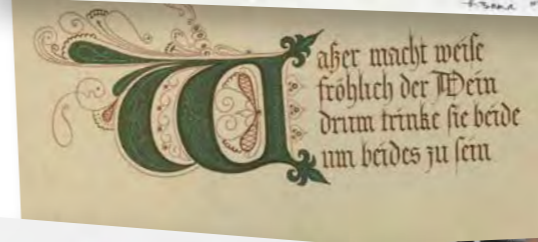 Waßer macht weiſe
fröhlich der Wein
drum trinke ſie beide
um beides zu ſein